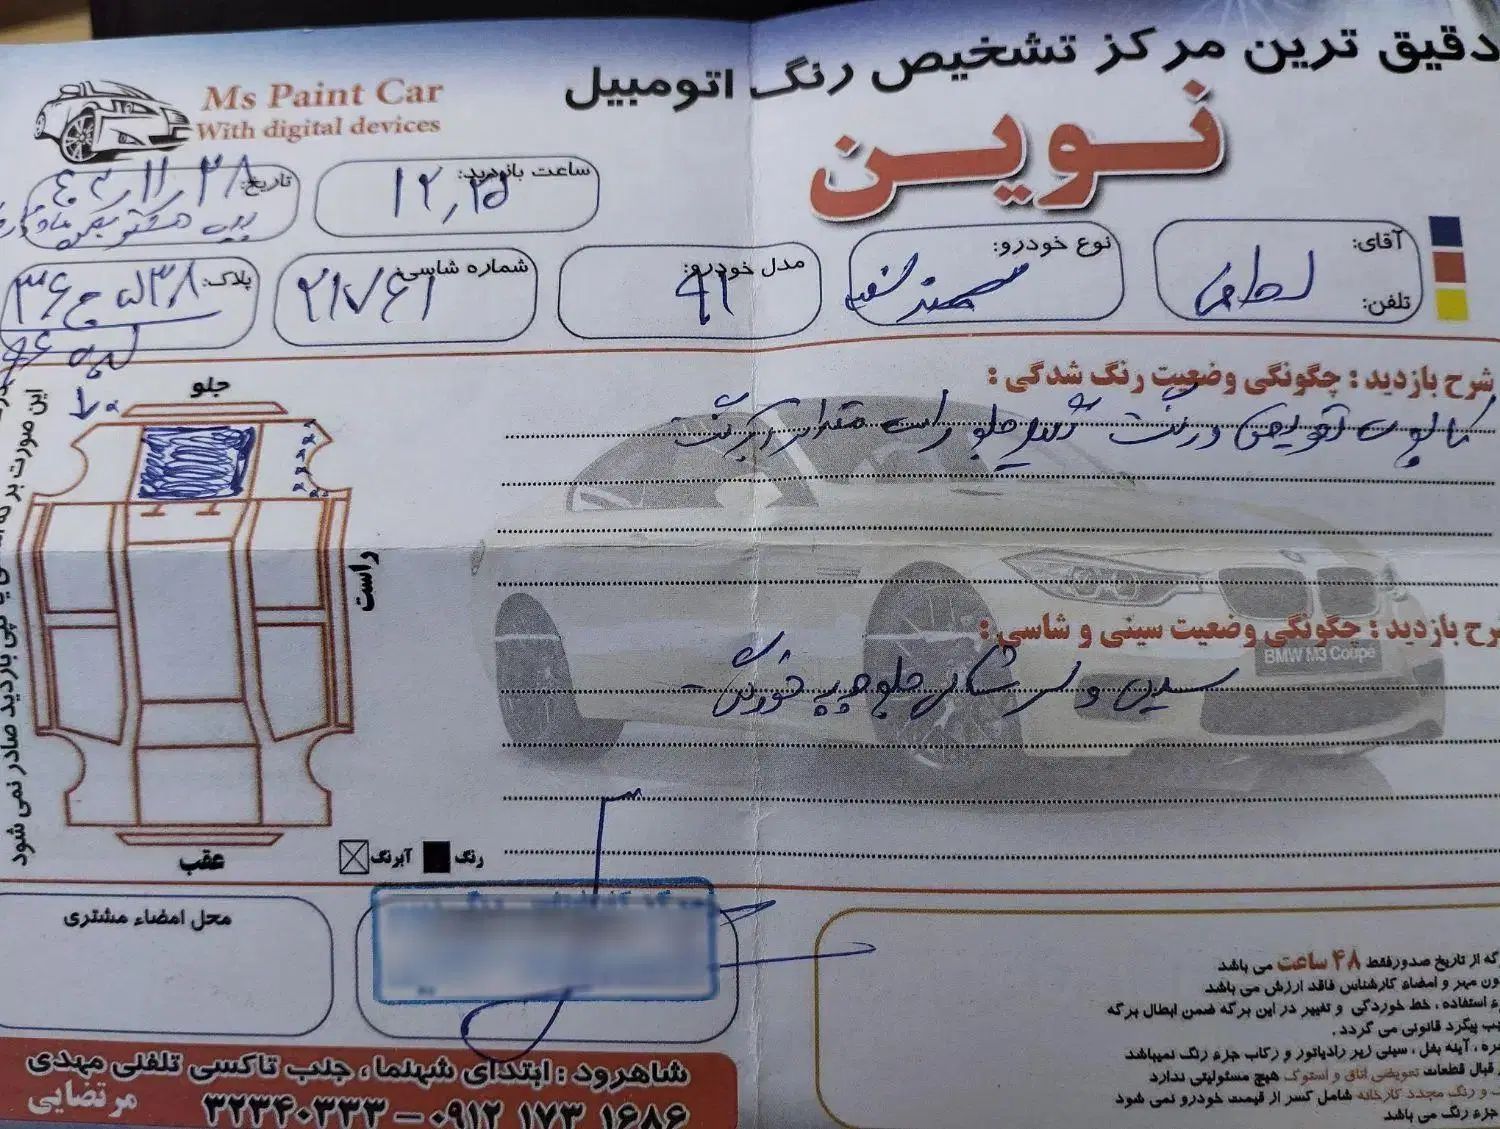 دقیق ترین مرکز تشخیص رنگ اتومبیل
نوین
Ms Paint Car
With digital devices
تاریخ: ۴۰۳/۱۱/۲۸
ساعت بازدید: ۱۲,۲۵
آقای:
تلفن:
نوع خودرو: سمند سفید
مدل خودرو: ۹۲
شماره شاسی: ۲۱۷۶۱
پلاک:
شرح بازدید : چگونگی وضعیت رنگ شدگی :
کاپوت تعویض و رنگ گلگیر جلو راست مقداری آبرنگ
شرح بازدید : چگونگی وضعیت سینی و شاسی :
سینی و سر شاسی جلو چپ خوردگی
BMW M3 Coupe
جلو
راست
عقب
آبرنگ
رنگ
این صورت بر
بازدید صادر نمی شود
محل امضاء مشتری
گه از تاریخ صدورفقط ۴۸ ساعت می باشد
ون مهر و امضاء کارشناس فاقد ارزش می باشد
ء استفاده ، خط خوردگی و تغییر در این برگه ضمن ابطال برگه
جب پیگرد قانونی می گردد .
جره ، آینه بغل ، سینی زیر رادیاتور و رکاب جزء رنگ نمیباشد
ر قبال قطعات تعویضی اتاق و استوک هیچ مسئولیتی ندارد
و رنگ مجدد کارخانه شامل کسر از قیمت خودرو نمی شود
جزء رنگ می باشد
شاهرود : ابتدای شهنما ، جنب تاکسی تلفنی مهدی
۳۲۳۴۰۳۳۳ – ۰۹۱۲ ۱۷۳ ۱۶۸۶
مرتضایی